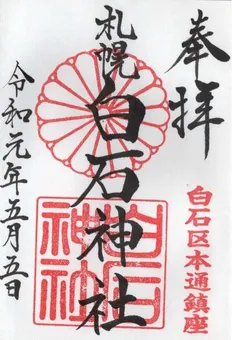 奉拝
白石区本通鎮座
札幌
白石神社
白石神社
令和元年五月五日